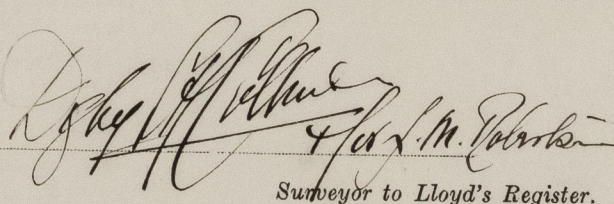 Digby
& for L. M. Robertson
Surveyor to Lloyd's Register.